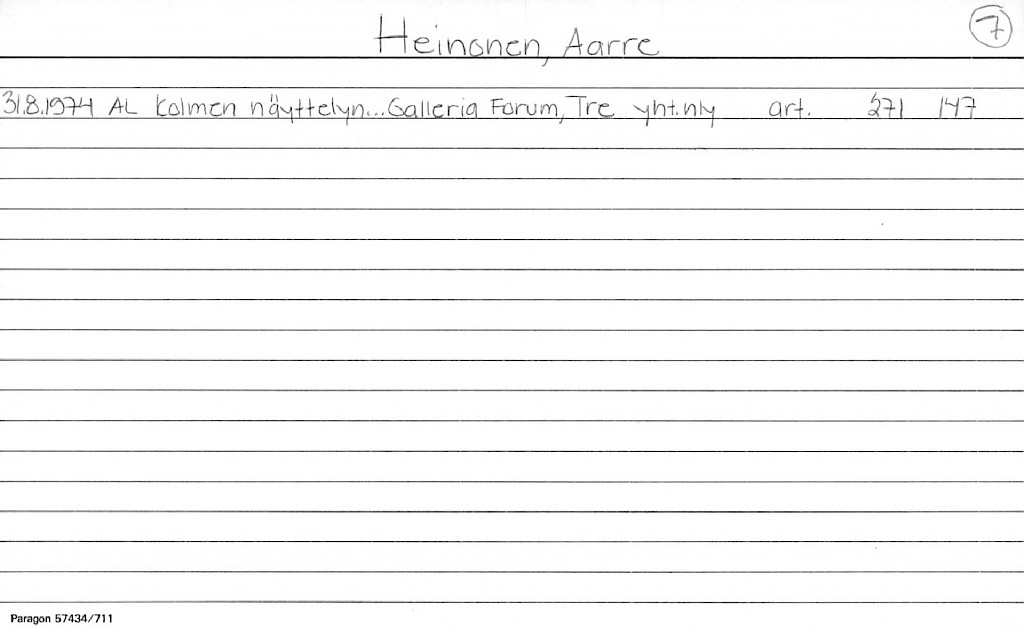 Heinonen, Aarre 7
31.8.1974 AL Kolmen näyttelyn... Galleria Forum, Tre yht.nly art. 271 147
Paragon 57434/711